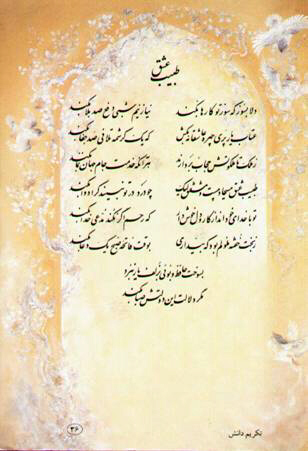 طبیب عشق
دلا بسوز که سوز تو کارها بکند نیاز نیم شبی دفع صد بلا بکند
عتاب یار پری چهره عاشقانه بکش که یک کرشمه تلافی صد جفا بکند
ز ملک تا ملکوتش حجاب بردارند هر آنکه خدمت جام جهان نما بکند
طبیب عشق مسیحا دم است و مشفق لیک چو درد در تو نبیند که را دوا بکند
تو با خدای خود انداز کار و دل خوش دار که رحم اگر نکند مدعی خدا بکند
ز بخت خفته ملولم بود که بیداری بوقت فاتحه صبح یک دعا بکند
بسوخت حافظ و بویی بزلف یار نبرد
مگر دلالت این دولتش صبا بکند
۳۶
تکریم دانش